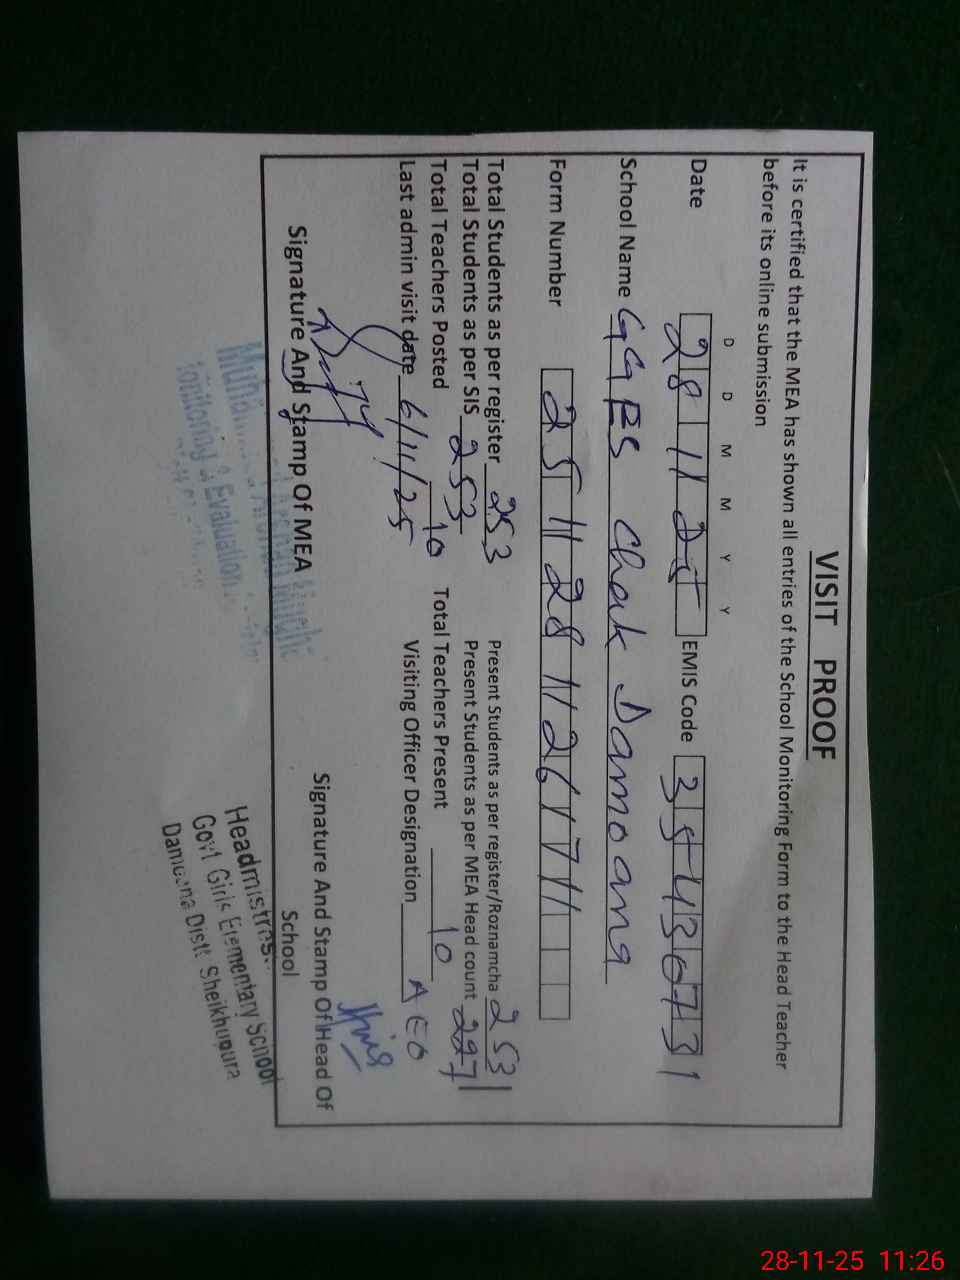 VISIT PROOF
It is certified that the MEA has shown all entries of the School Monitoring Form to the Head Teacher
before its online submission
D D M M Y Y
Date 28 11 25 EMIS Code 35430731
School Name GGES Chak Damoana
Form Number 25 11 28 11 26 17 11
Total Students as per register 253 Present Students as per register/Roznamcha 253
Total Students as per SIS 253 Present Students as per MEA Head count 227
Total Teachers Posted 10 Total Teachers Present 10
Last admin visit date 6/11/25 Visiting Officer Designation AEO
Signature And Stamp Of MEA Signature And Stamp Of Head Of
School
Monitoring & Evaluation
Headmistress
Govt Girls Elementary School
Damoana Distt Sheikhupura
28-11-25 11:26